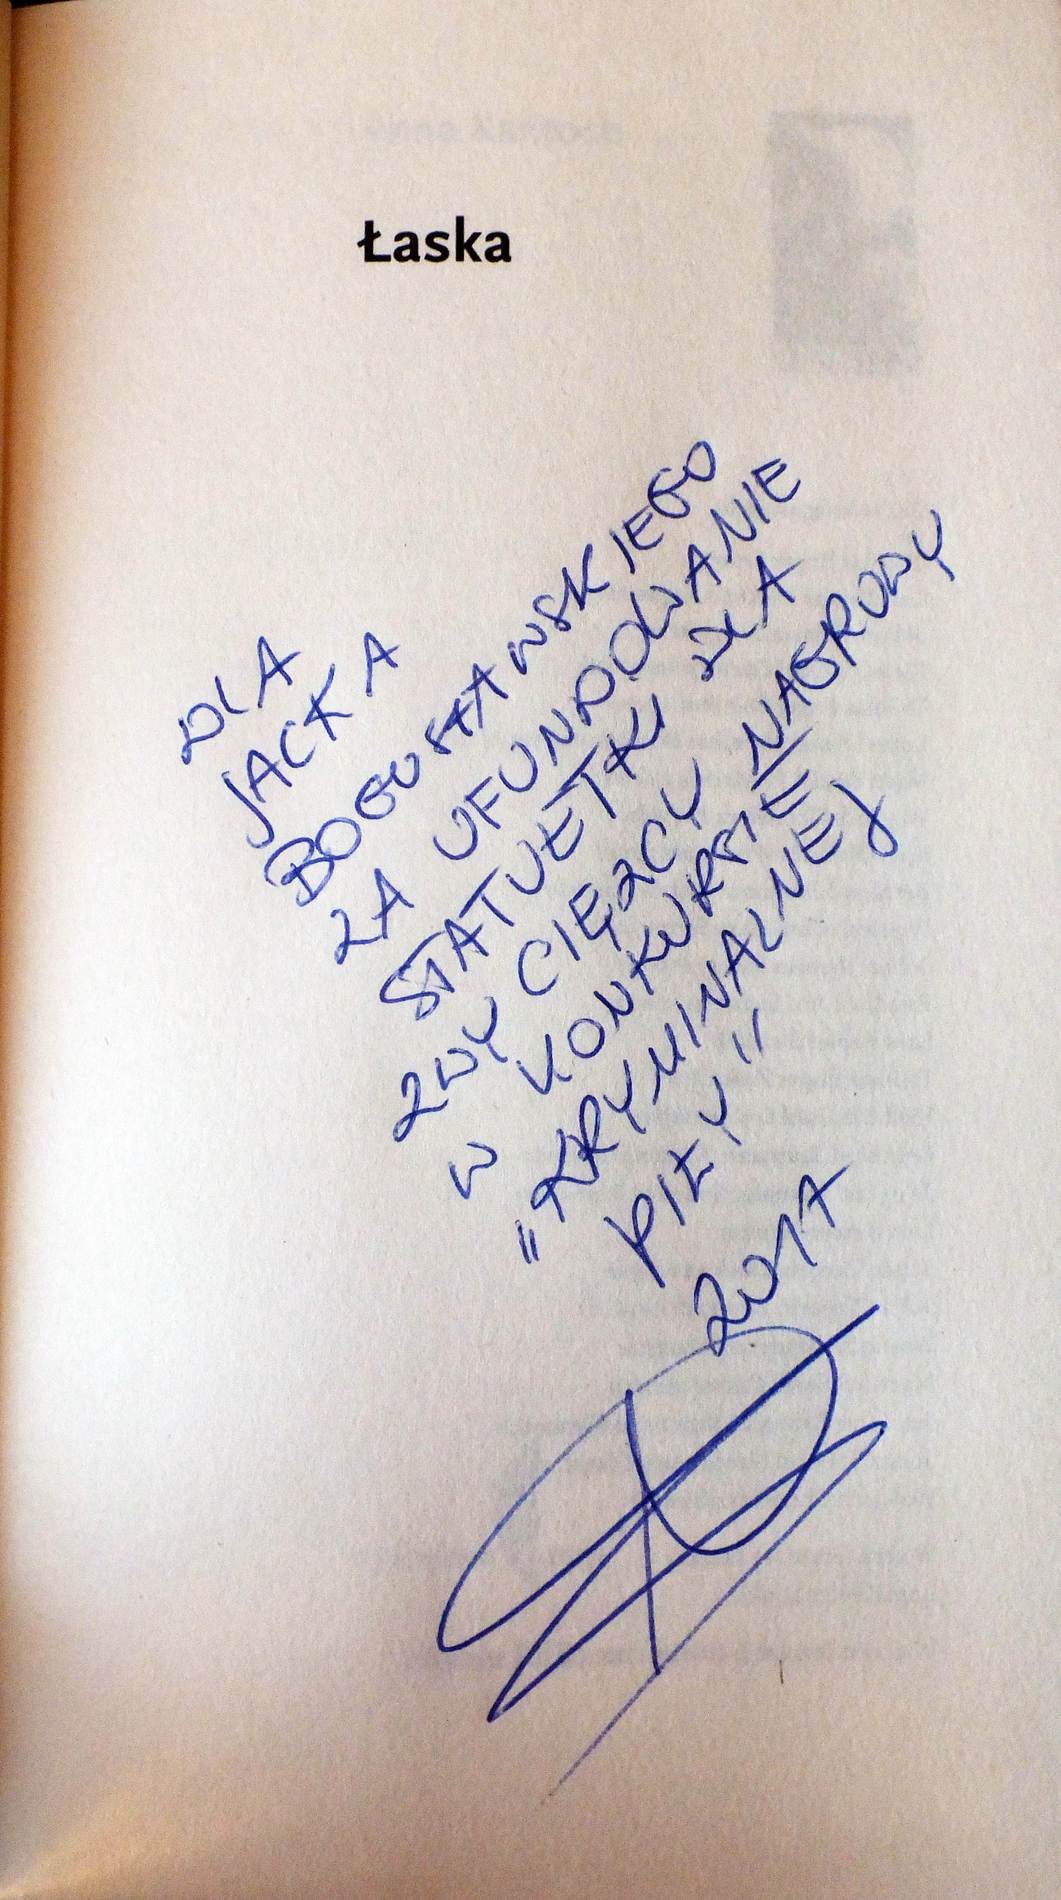 Łaska
DLA
JACKA
BOGUSŁAWSKIEGO
ZA UFUNDOWANIE
STATUETKI DLA
ZWYCIĘZCY
W KONKURSIE NAGRODY
"KRYMINALNEJ
PIŁY"
2017